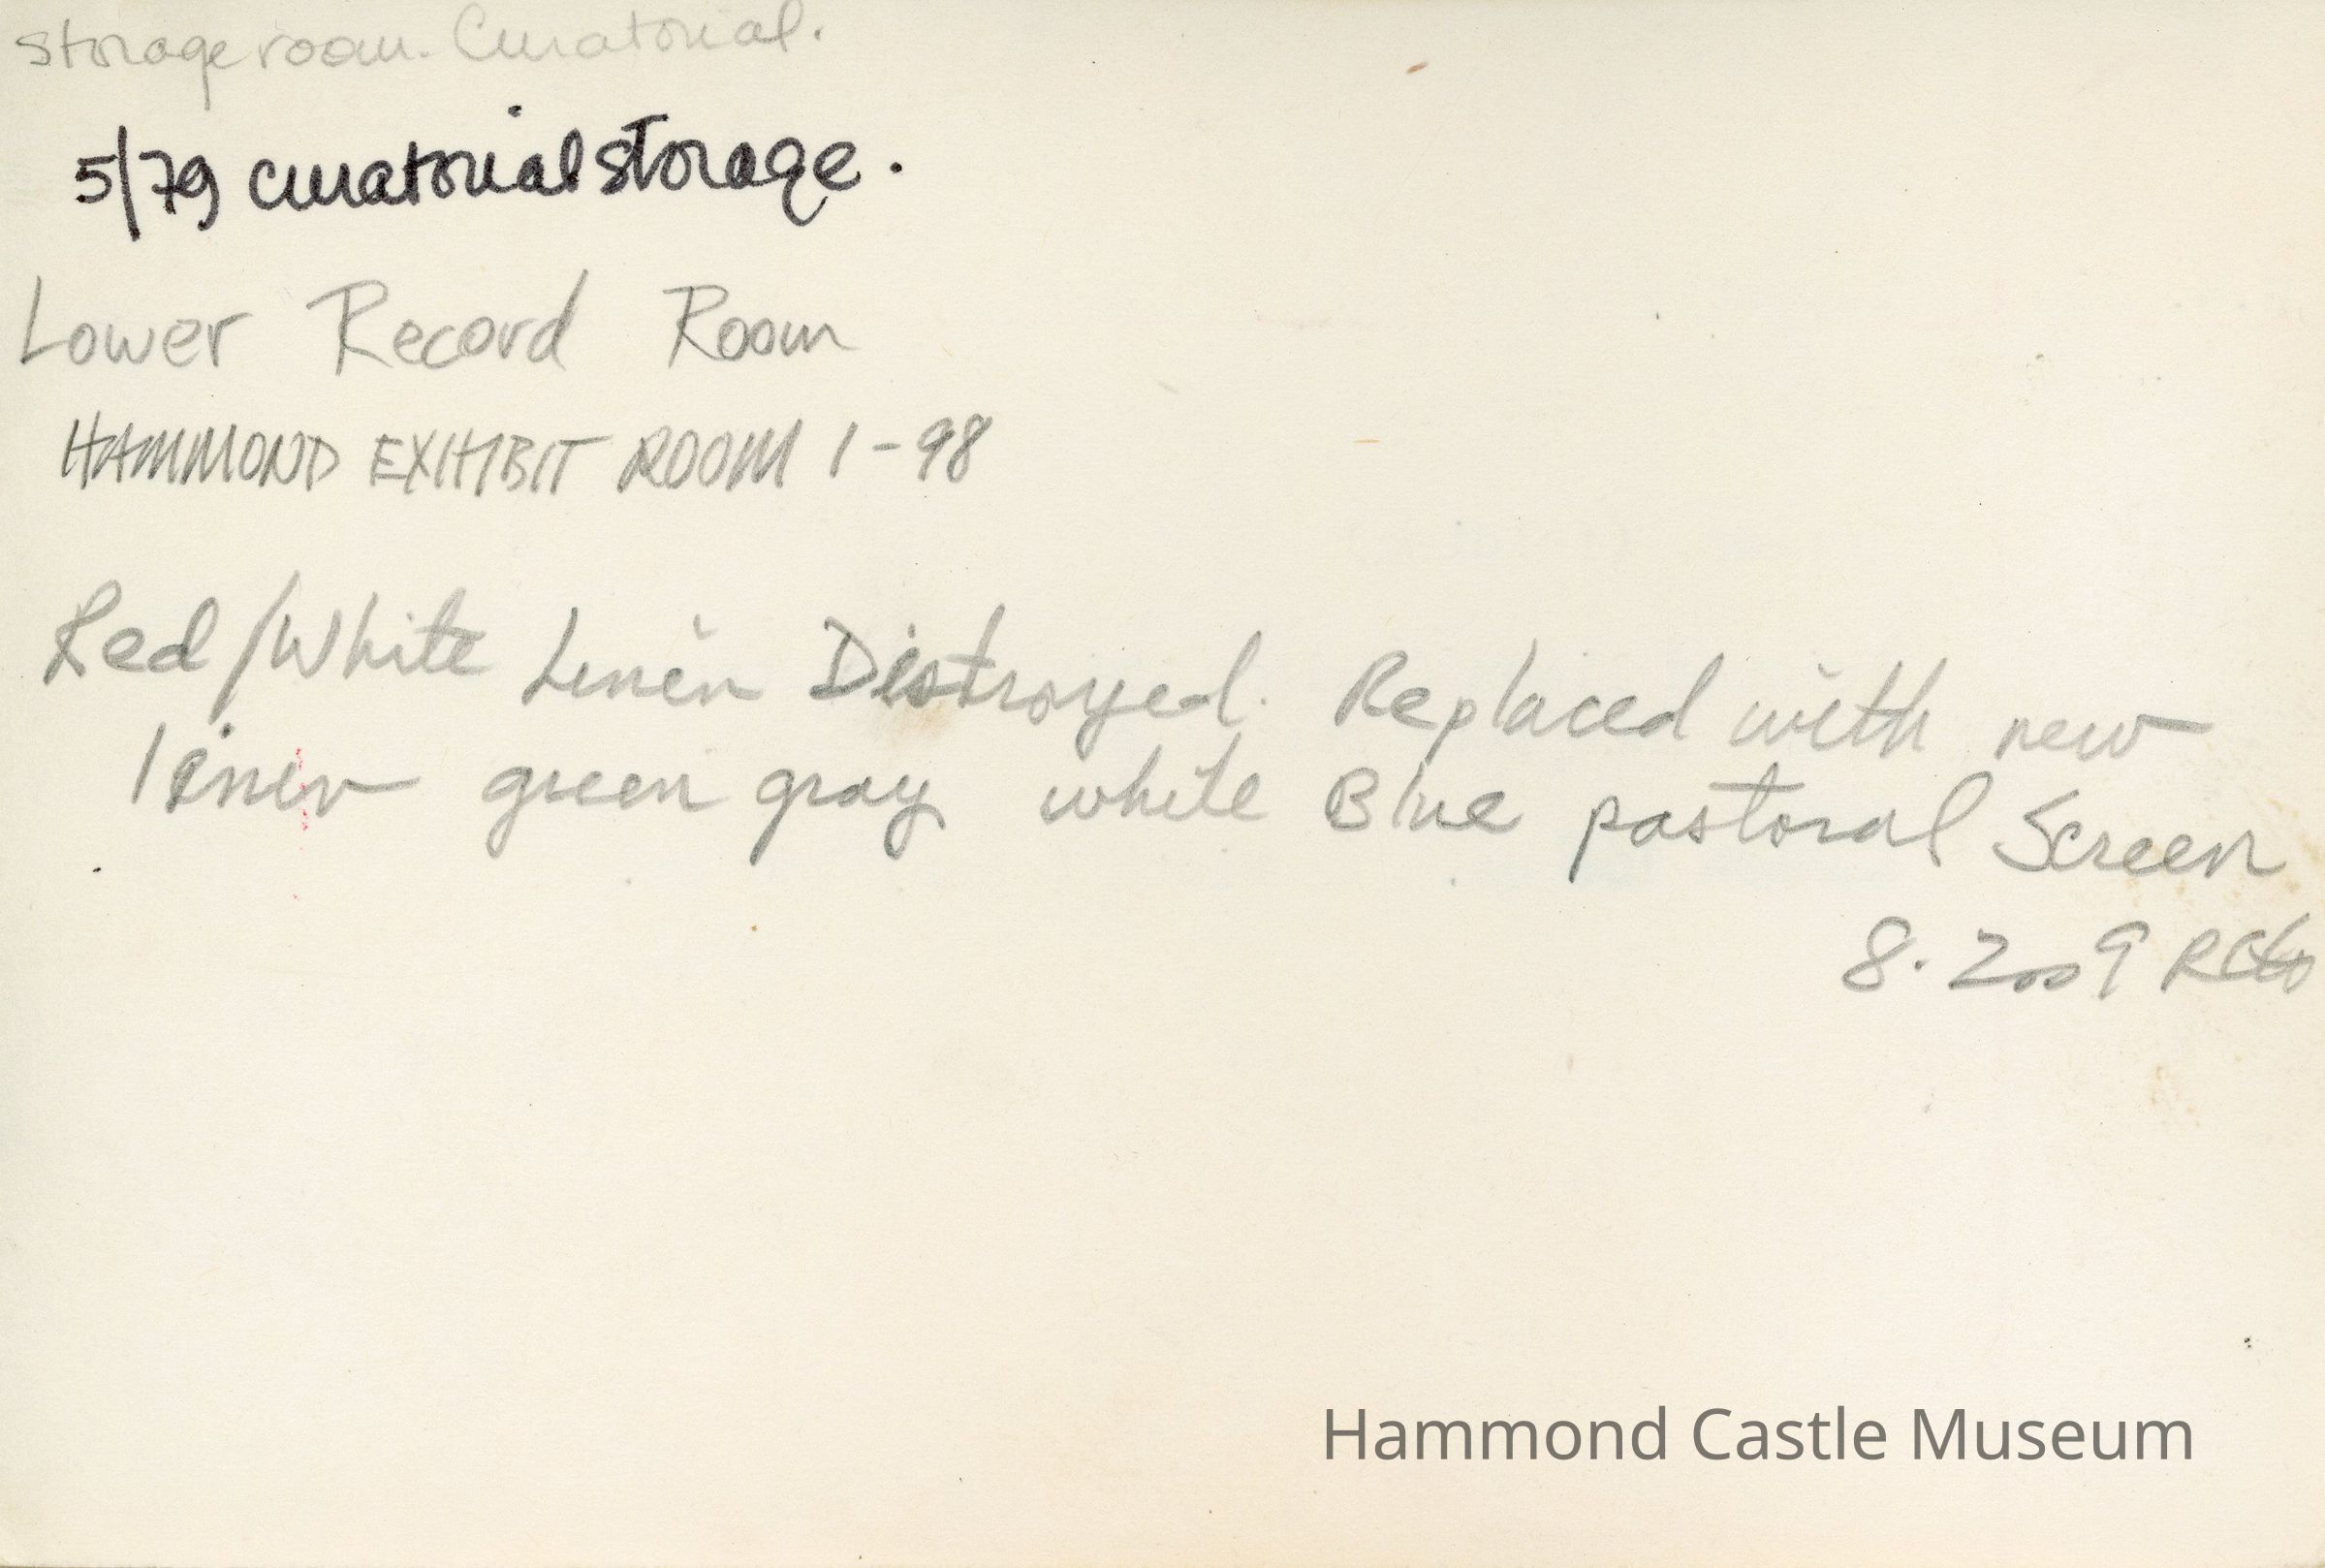 Storage room. Curatorial.
5/79 curatorial storage.
Lower Record Room
HAMMOND EXHIBIT ROOM 1-98
Red/White Linen Distroyed. Replaced with new
linen green gray white Blue pastoral Screen
8. 2009
Hammond Castle Museum